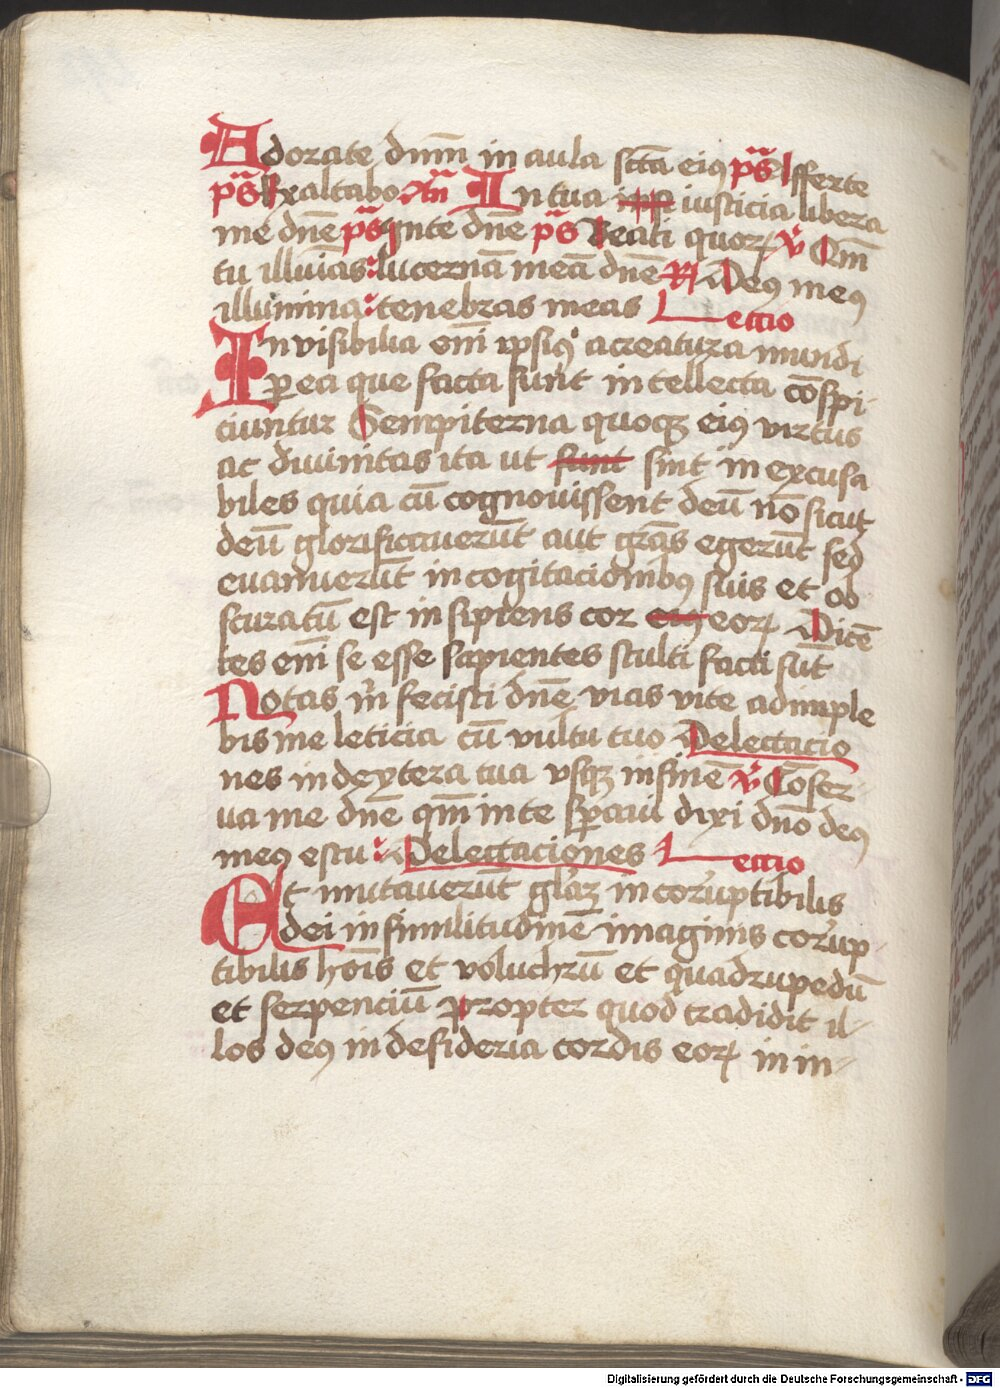 Adorate dnm̄ in aula scta eiꝰ pS̄ Afferte
pS̄ Exaltabo An̄ In tua iusticia libera
me dnē pS̄ In te dnē pS̄ Beati quoꝝ v̄ Qm̄
tu illuīas lucernā meā dnē R Deꝰ meꝰ
illumina tenebras meas Lectio
Invisibilia em̄ ipsiꝰ a creatura mundi
ꝑ ea que facta sunt intellecta cōspi-
ciuntur Sempiterna quoqꝫ eiꝰ virtus
ac diuinitas ita ut sunt sint in excusa
biles quia cū cognouissent deū nō sicut
deū glorificauerūt aut grās egerūt sed
euanuerūt in cogitacionibꝰ suis et ob
scuratū est insipiens cor eiꝰ eoꝝ Dicē
tes em̄ se esse sapientes stulti facti sūt
Notas m̄ fecisti dnē vias vite adimple
bis me leticia cū vultu tuo Delectacio
nes in dextera tua vsqꝫ in finē v̄ Cōser-
ua me dnē qm̄ in te sꝑaui dixi dnō deꝰ
meꝰ es tu Delectaciones Lectio
Et mutauerūt glaꝫ incorruptibilis
dei in similitudinē imaginis corrup-
tibilis hoīs et voluchrū et quadrupedū
et serpenciū propter quod tradidit il-
los deꝰ in desideria cordis eoꝝ in in-
Digitalisierung gefördert durch die Deutsche Forschungsgemeinschaft - DFG